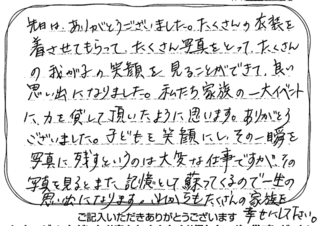 先日は、ありがとうございました。たくさんの衣装を
着させてもらって、たくさん写真をとって、たくさん
の我が子の笑顔を見ることができて、良い
思い出になりました。私たち家族の一大イベント
に、力を貸して頂いたように思います。ありがとう
ございました。子どもを笑顔にし、その一瞬を
写真に残すというのは大変な仕事ですが、その
写真を見るとまた、記憶として蘇ってくるので一生の
思い出になります。これからもたくさんの家族を
幸せにして下さい。
ご記入いただきありがとうございます